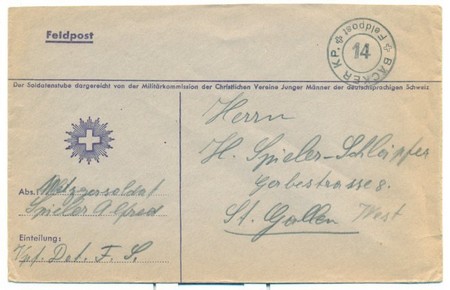 Feldpost
BÄCKER KP. Feldpost
14
Der Soldatenstube dargereicht von der Militärkommission der Christlichen Vereine Junger Männer der deutschsprachigen Schweiz
Herrn
H. Spieler-Schläpfer
Gerbestrasse 8.
St. Gallen West
Abs.: Metzgersoldat
Spieler Alfred
Einteilung:
Vpf. Det. F. S.